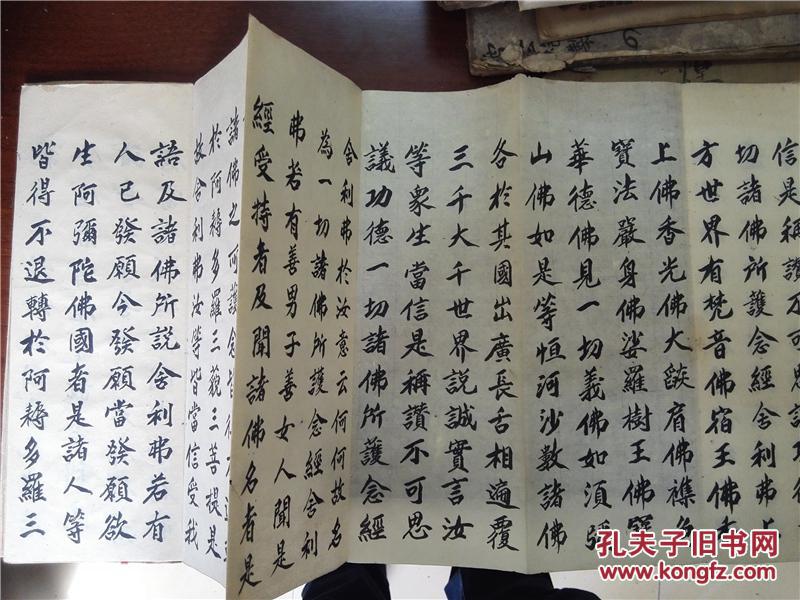 信是稱讚不可思
切諸佛所護念經舍利弗上
方世界有梵音佛宿王佛香
上佛香光佛大燄肩佛襍色
寶法嚴身佛娑羅樹王佛寶
華德佛見一切義佛如須彌
山佛如是等恒河沙數諸佛
各於其國出廣長舌相遍覆
三千大千世界說誠實言汝
等衆生當信是稱讚不可思
議功德一切諸佛所護念經
舍利弗於汝意云何何故名
為一切諸佛所護念經舍利
弗若有善男子善女人聞是
經受持者及聞諸佛名者是
諸佛之所護念皆
於阿耨多羅三藐三菩提是
故舍利弗汝等皆當信受我
語及諸佛所說舍利弗若有
人已發願今發願當發願欲
生阿彌陀佛國者是諸人等
皆得不退轉於阿耨多羅三
孔夫子旧书网
www.kongfz.com